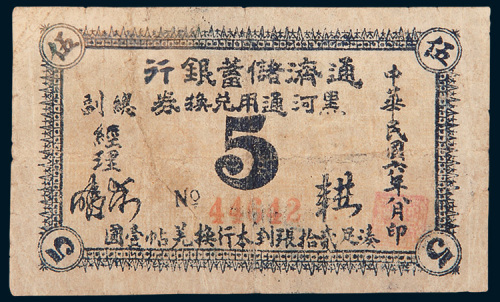 伍
伍
通濟儲蓄銀行
黑河通用兌換券
5
總副
經理
中華民國六年八月印
№ 44642
湊足貳拾張到本行換羌帖壹圓
5
5